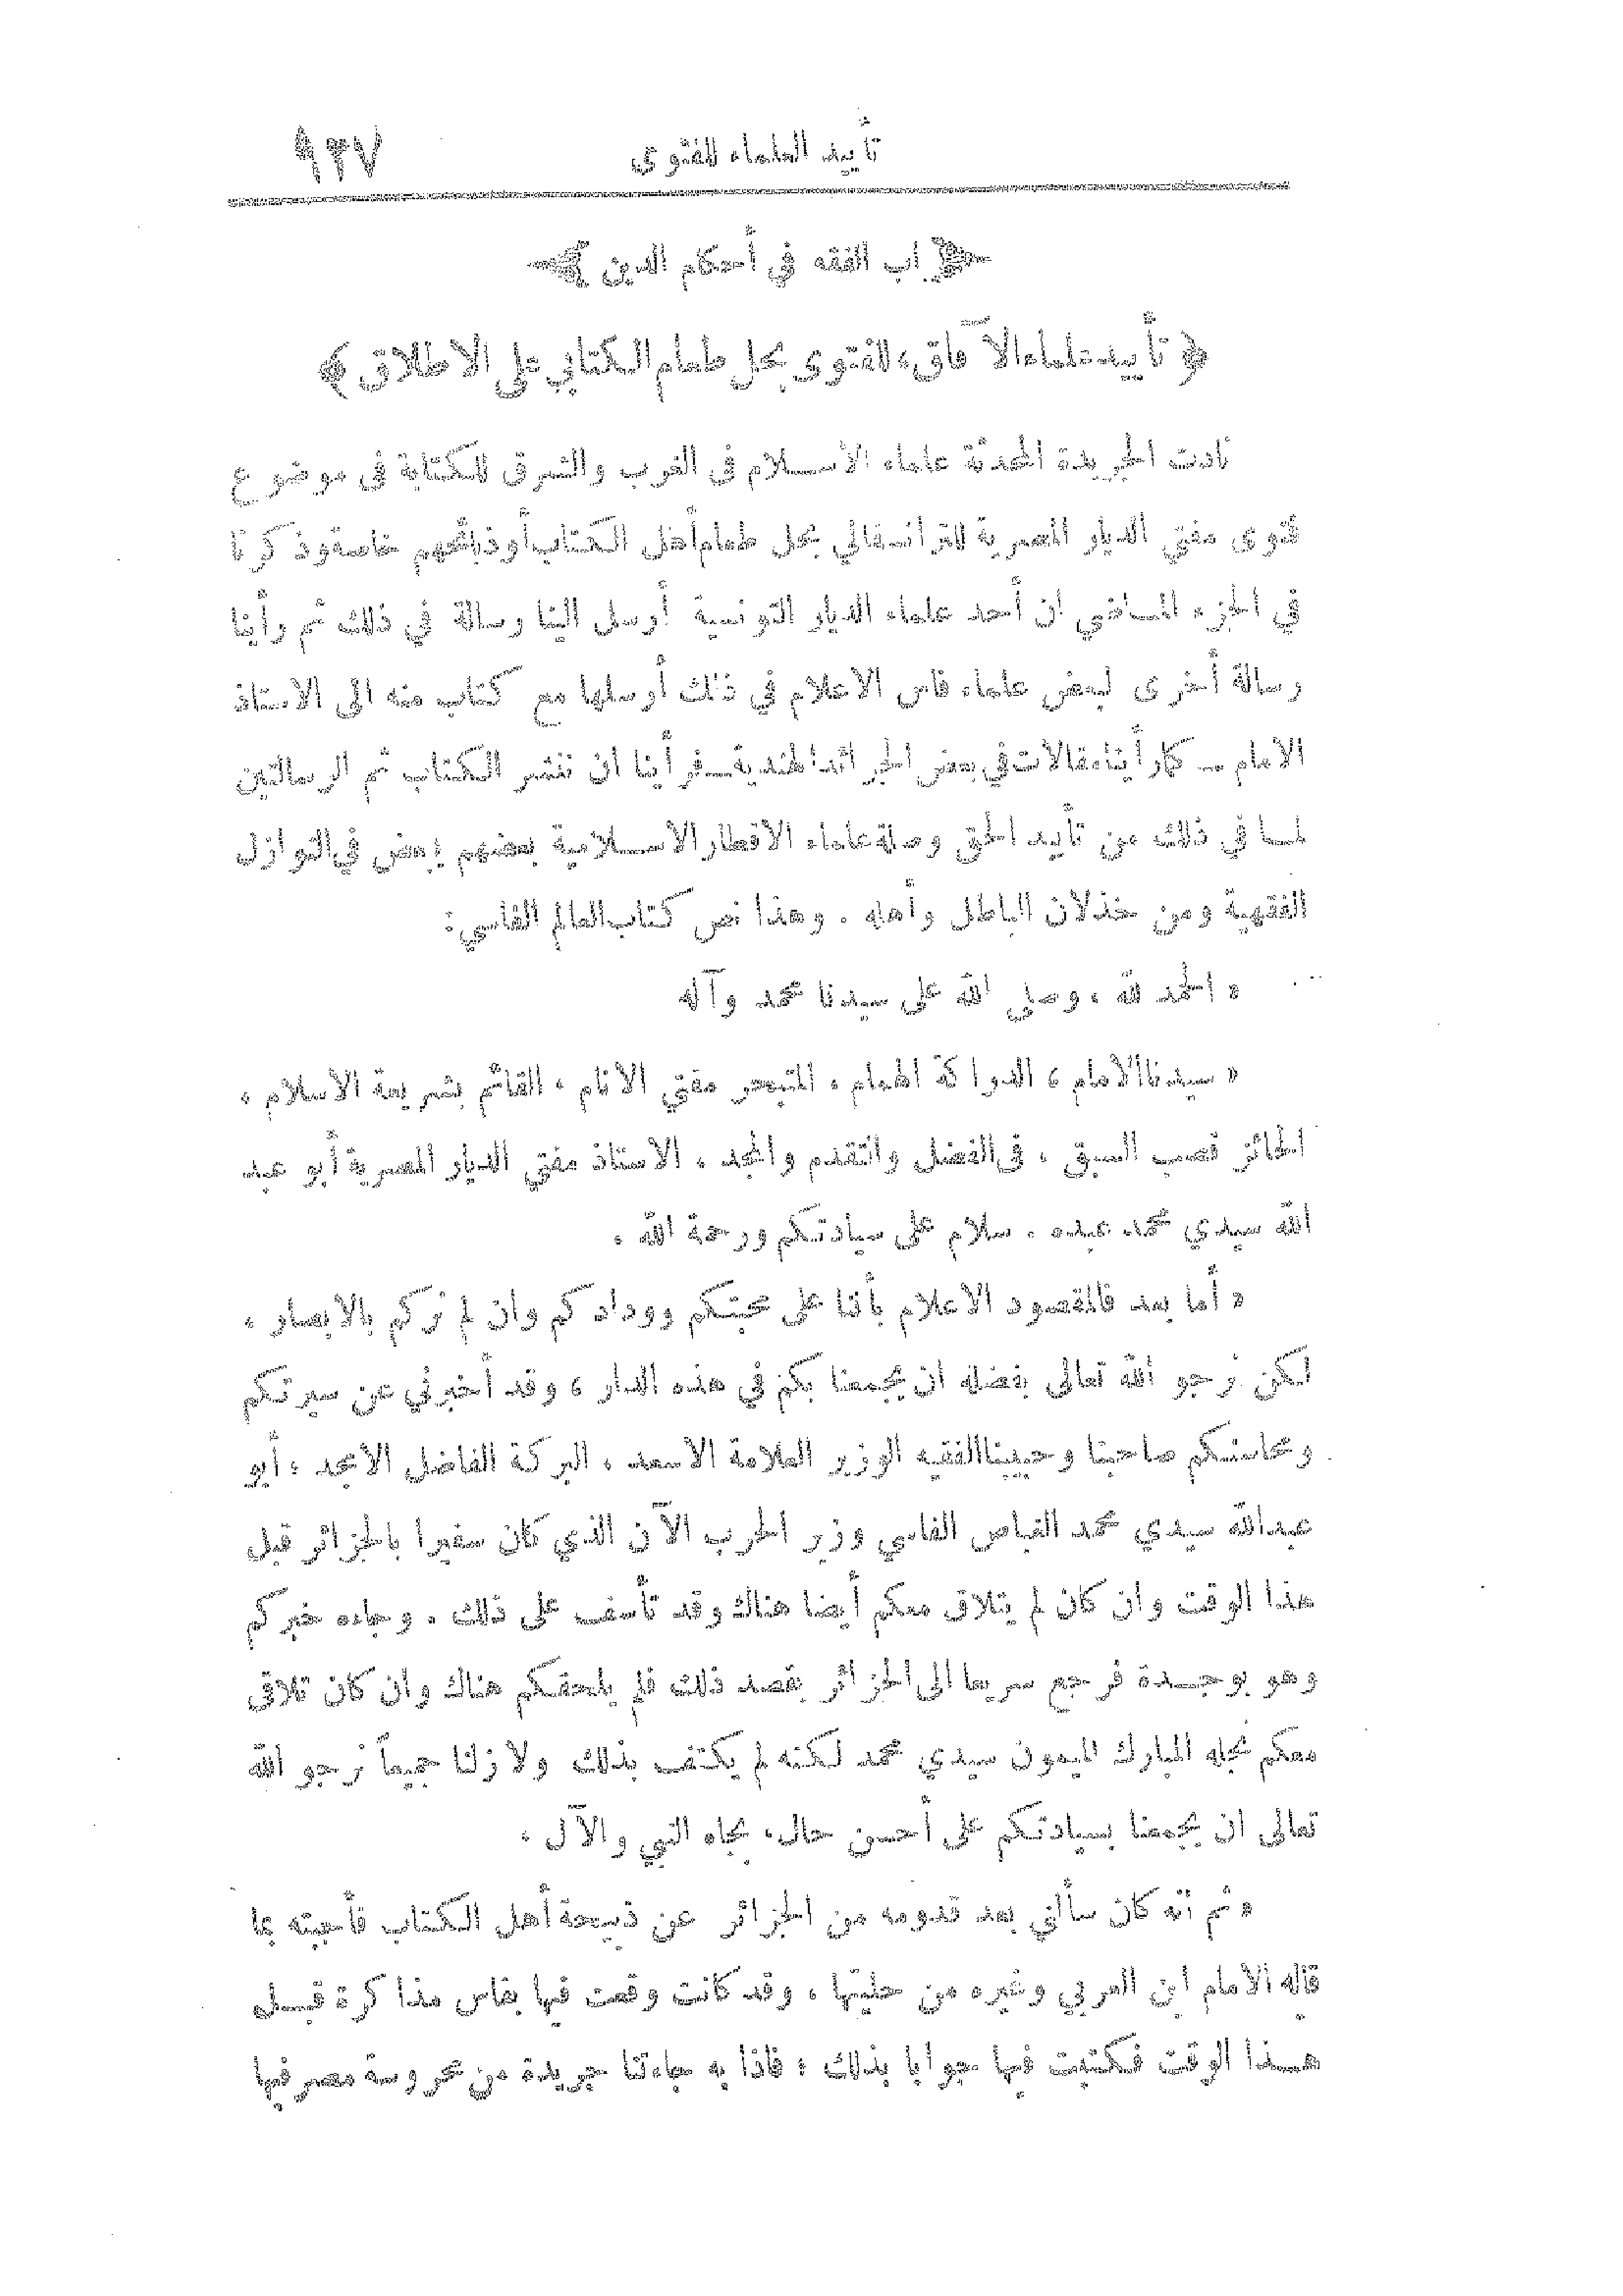 تأييد العلماء للفتوى ٩٢٧
باب الفقه في أحكام الدين
﴿ تأييد علماء الآفاق، للفتوى بحل طعام الكتابي على الاطلاق ﴾
نادت الجريدة المحدثة علماء الاسلام فى الغرب والشرق للكتابة فى موضوع
فتوى مفتي الديار المصرية للترانسفالي بحل طعام أهل الكتاب أو ذبائحهم خاصة وذكرنا
في الجزء الماضي ان أحد علماء الديار التونسية أرسل الينا رسالة في ذلك ثم رأينا
رسالة أخرى لبعض علماء فاس الاعلام في ذلك أرسلها مع كتاب منه الى الاستاذ
الامام ــ كما رأينا مقالات في بعض الجرائد الهندية ــ فرأينا ان ننشر الكتاب ثم الرسالتين
لما في ذلك من تأييد الحق وصلة علماء الاقطار الاسلامية بعضهم ببعض في النوازل
الفقهية ومن خذلان الباطل وأهله . وهذا نص كتاب العالم الفاسي:
« الحمد لله ، وصلى الله على سيدنا محمد وآله
« سيدنا الامام ، الدراكة الهمام ، المتبحر مفتي الانام ، القائم بشريعة الاسلام ،
الحائز قصب السبق ، فى الفضل والتقدم والمجد ، الاستاذ مفتي الديار المصرية أبو عبد
الله سيدي محمد عبده . سلام على سيادتكم ورحمة الله .
« أما بعد فالمقصود الاعلام بأننا على محبتكم وودادكم وان لم نركم بالابصار ،
لكن نرجو الله تعالى بفضله ان يجمعنا بكم في هذه الدار ، وقد أخبرني عن سيرتكم
ومحاسنكم صاحبنا وحبيبنا الفقيه الوزير العلامة الاسعد ، البركة الفاضل الامجد ، أبو
عبدالله سيدي محمد الغباص الفاسي وزير الحرب الآن الذي كان سفيرا بالجزائر قبل
هذا الوقت وان كان لم يتلاق معكم أيضا هناك وقد تأسف على ذلك . وجاءه خبركم
وهو بوجدة فرجع سريعا الى الجزائر بقصد ذلك فلم يلحقكم هناك وان كان تلاقى
معكم نجله المبارك الميمون سيدي محمد لكنه لم يكتف بذلك ولا زلنا جميعاً نرجو الله
تعالى ان يجمعنا بسيادتكم على أحسن حال، بجاه النبي والآل .
« ثم انه كان سألني بعد قدومه من الجزائر عن ذبيحة أهل الكتاب فأجبته بما
قاله الامام ابن العربي وغيره من حليتها ، وقد كانت وقعت فيها بفاس مذاكرة قبل
هذا الوقت فكتبت فيها جوابا بذلك : فاذا به جاءتنا جريدة من محروسة مصر فيها